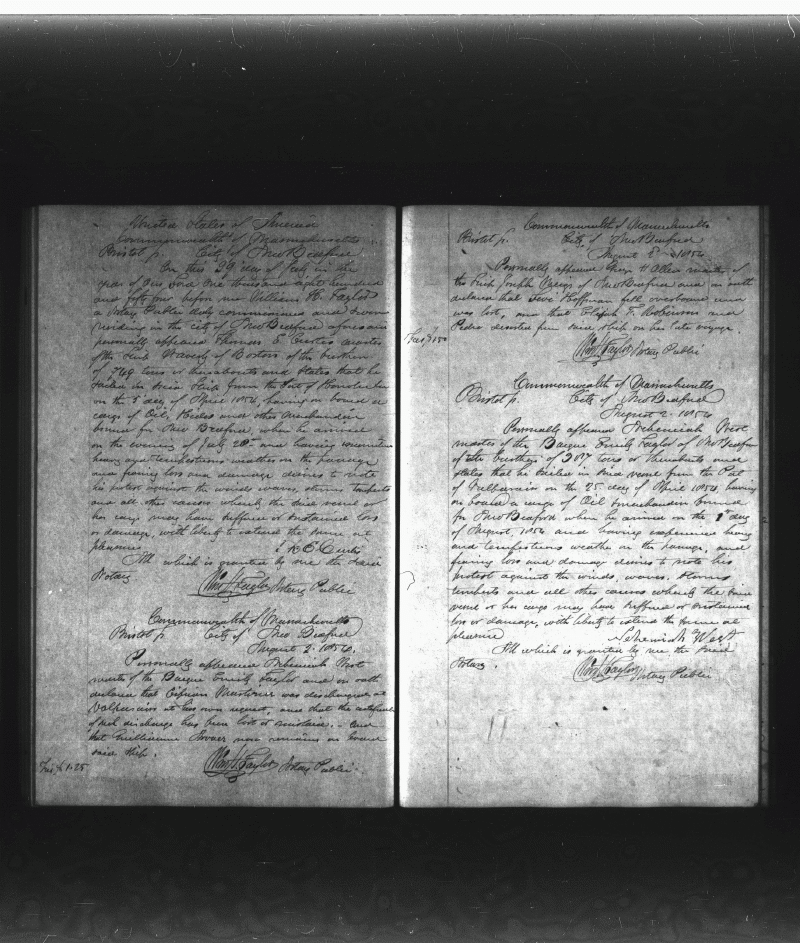 United States of America
Commonwealth of Massachusetts
Bristol ss. City of New Bedford
On this 29 day of July in the
year of our Lord one thousand eight hundred
and fifty four before me William H. Taylor
a Notary Public duly commissioned and sworn
residing in the city of New Bedford aforesaid
personally appeared Thomas E Curtis master
of the Ship Waverly of Boston of the burthen
of 749 tons or thereabouts and states that he
sailed in said Ship from the Port of Honolulu
on the 5 day of April 1854, having on board a
cargo of Oil, Hides and other Merchandise
bound for New Bedford, when he arrived
on the evening of July 28th and having
heavy and tempestuous weather on the passage
and fearing loss and damage desires to note
his protest against the winds, waves, storms tempests
and all other causes whereby the said vessel or
her cargo may have suffered or sustained loss
or damage, with liberty to extend the same at
pleasure. Curtis
All which is granted by me the said
Notary
Wm H. Taylor Notary Public
Commonwealth of Massachusetts
Bristol ss. City of New Bedford
August 2. 1854.
Personally appeared Nehemiah West
master of the Barque Emily Taylor and on oath
declared that was discharged at
Valparaiso at his own request, and that the certificate
of said discharge has been lost or mislaid. - And
that now remains on board
said ship.
Wm H. Taylor Notary Public
1.25
Commonwealth of Massachusetts
Bristol ss. City of New Bedford
August 1854
Personally appeared H Allen master of
the Ship Joseph of New Bedford and on oath
declared that fell overboard and
was lost, and that Elijah F. Robinson and
Pedro deserted from said ship on her late voyage.
Wm H. Taylor Notary Public
Commonwealth of Massachusetts
Bristol ss. City of New Bedford
August 2. 1854
Personally appeared Nehemiah West
master of the Barque Emily Taylor of New Bedford
of the burthen of tons or thereabouts and
states that he sailed in said vessel from the Port
of on the 25 day of April 1854, having
on board a cargo of Oil merchandise bound
for New Bedford when he arrived on the 1st day
of August, 1854 and having experienced heavy
and tempestuous weather on the passage, and
fearing loss and damage desires to note his
protest against the winds, waves, storms
tempests and all other causes whereby the said
vessel or her cargo may have suffered or sustained
loss or damage, with liberty to extend the same at
pleasure Nehemiah West
All which is granted by me the said
Notary.
Wm H. Taylor Notary Public